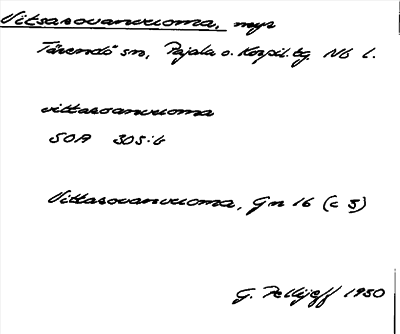 Vitsasovanvuoma, myr
Tärendö sn, Pajala o. Korpil. tg Nb l.
vittasovanvuoma
SOA 305:6
Vittasovanvuoma, Gn 16 (c 5)
G. Pellijeff 1950